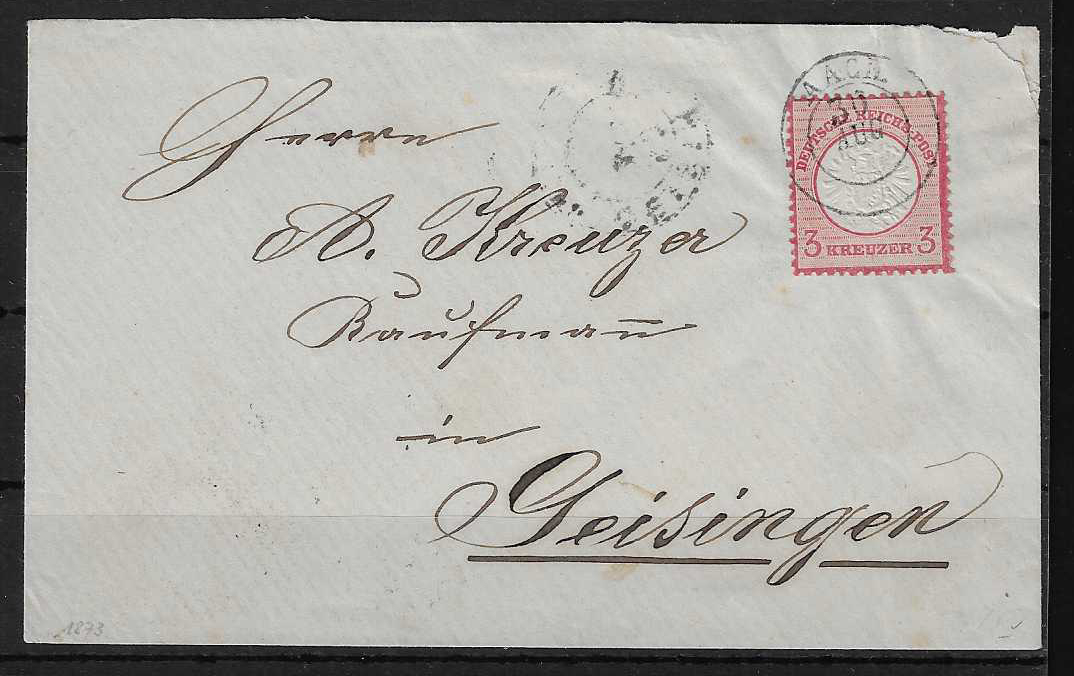 AACH.
30
AUG
DEUTSCHE REICHS-POST
3 KREUZER 3
Herrn
A. Kreuzer
Kaufman̄
in
Geisingen
1873